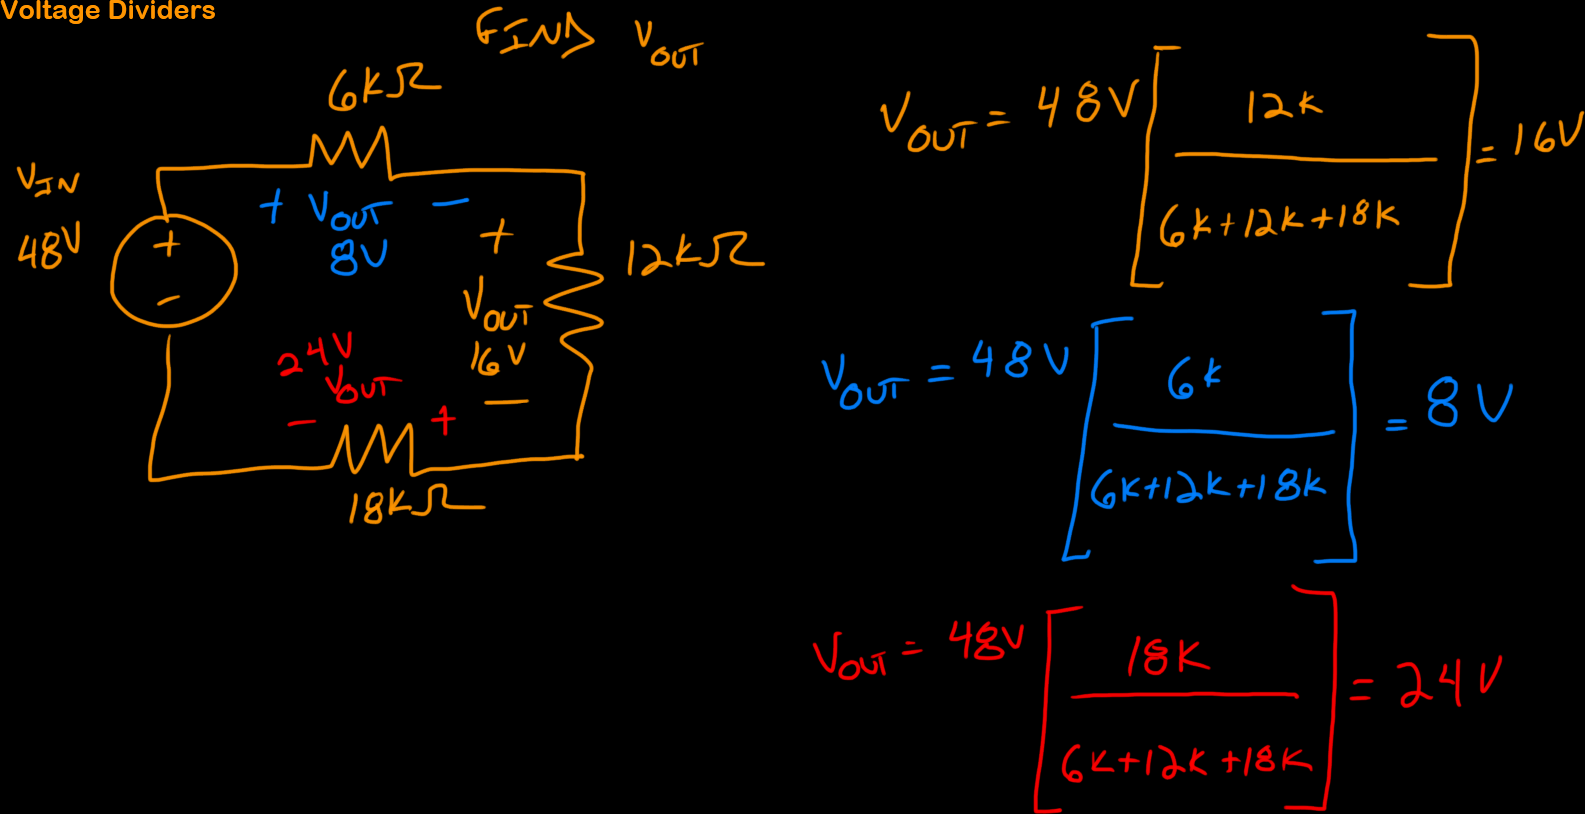 Voltage Dividers
FIND VOUT
6kΩ
VIN
48V
+
-
+ VOUT -
8V
+
VOUT
16V
-
12kΩ
24V
VOUT
- +
18kΩ
VOUT = 48V [ 12k / 6k+12k+18k ] = 16V
VOUT = 48V [ 6k / 6k+12k+18k ] = 8V
VOUT = 48V [ 18k / 6k+12k+18k ] = 24V